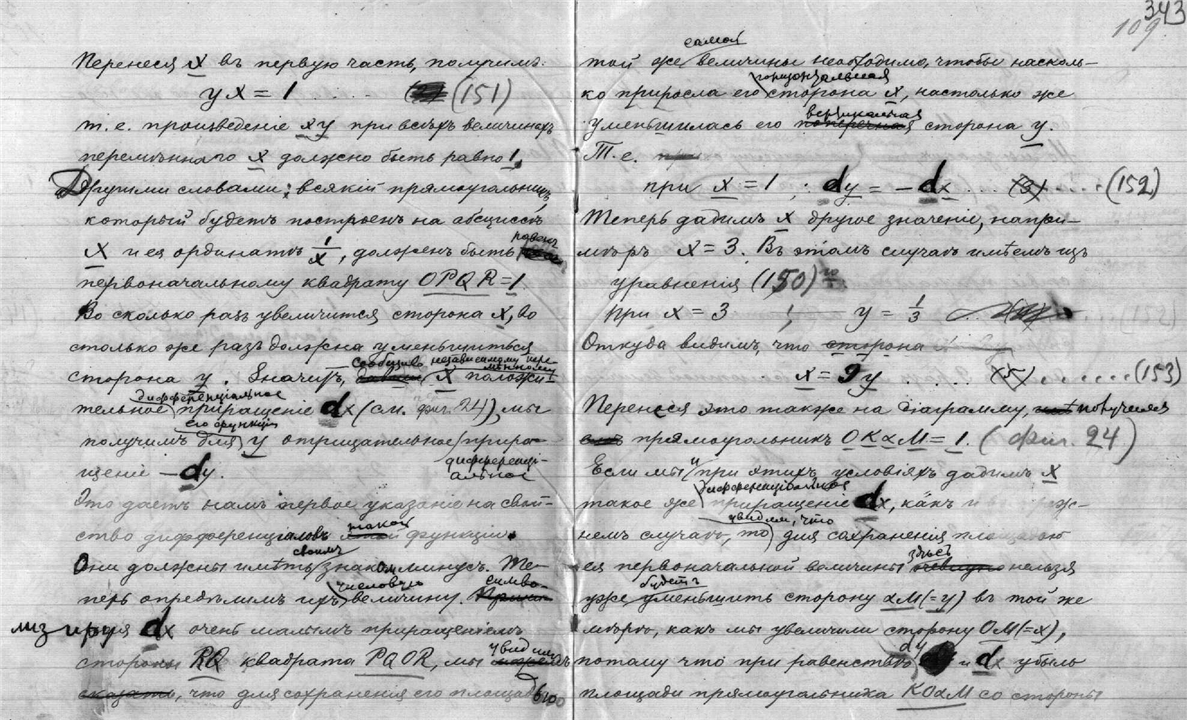 Перенеся x въ первую часть, получимъ:
yx = 1 . . . . (151)
т. е. произведеніе xy при всѣхъ величинахъ
перемѣннаго x должно быть равно 1.
Другими словами: всякій прямоугольникъ,
который будетъ построенъ на абсциссѣ
x и ея ординатѣ 1/x, долженъ быть равенъ
первоначальному квадрату OPQR = 1.
Во сколько разъ увеличится сторона x, во
столько же разъ должна уменьшиться
сторона y. Значитъ, сообщивъ независимому перемѣнному x положи-
тельное дифференціальное приращеніе dx (см. фиг. 24), мы
получимъ для его функціи y отрицательное дифференціальное прира-
щеніе – dy.
Это даетъ намъ первое указаніе на свой-
ство дифференціаловъ такой функціи.
Они должны имѣть своимъ знакомъ минусъ. Те-
перь опредѣлимъ ихъ числовую величину. Симво-
лизируя dx очень малымъ приращеніемъ
стороны RQ квадрата PQOR, мы увидимъ
, что для сохраненія его площади въ
343
109
той же самой величины необходимо, чтобы насколь-
ко приросла его горизонтальная сторона x, настолько же
уменьшилась его вертикальная сторона y.
Т. е.
при x = 1 ; dy = – dx . . . (3) . . . . . (152)
Теперь дадимъ x другое значеніе, напри-
мѣръ x = 3. Въ этомъ случаѣ имѣемъ изъ
уравненія (150)го
При x = 3 ; y = 1/3
Откуда видимъ, что сторона
x = 9y . . . . (5) . . . . . . (153)
Перенеся это также на діаграмму, получимъ
прямоугольникъ OKαM = 1. (фиг. 24)
Если мы и при этихъ условіяхъ дадимъ x
такое же дифференціальное приращеніе dx, какъ и
немъ случаѣ, то увидимъ, что для сохраненія площадью
ея первоначальной величины здѣсь нельзя
уже будетъ уменьшить сторону αM (=y) въ той же
мѣрѣ, какъ мы увеличили сторону OM (=x),
потому что при равенствѣ dy и dx убыль
площади прямоугольника KOαM со стороны